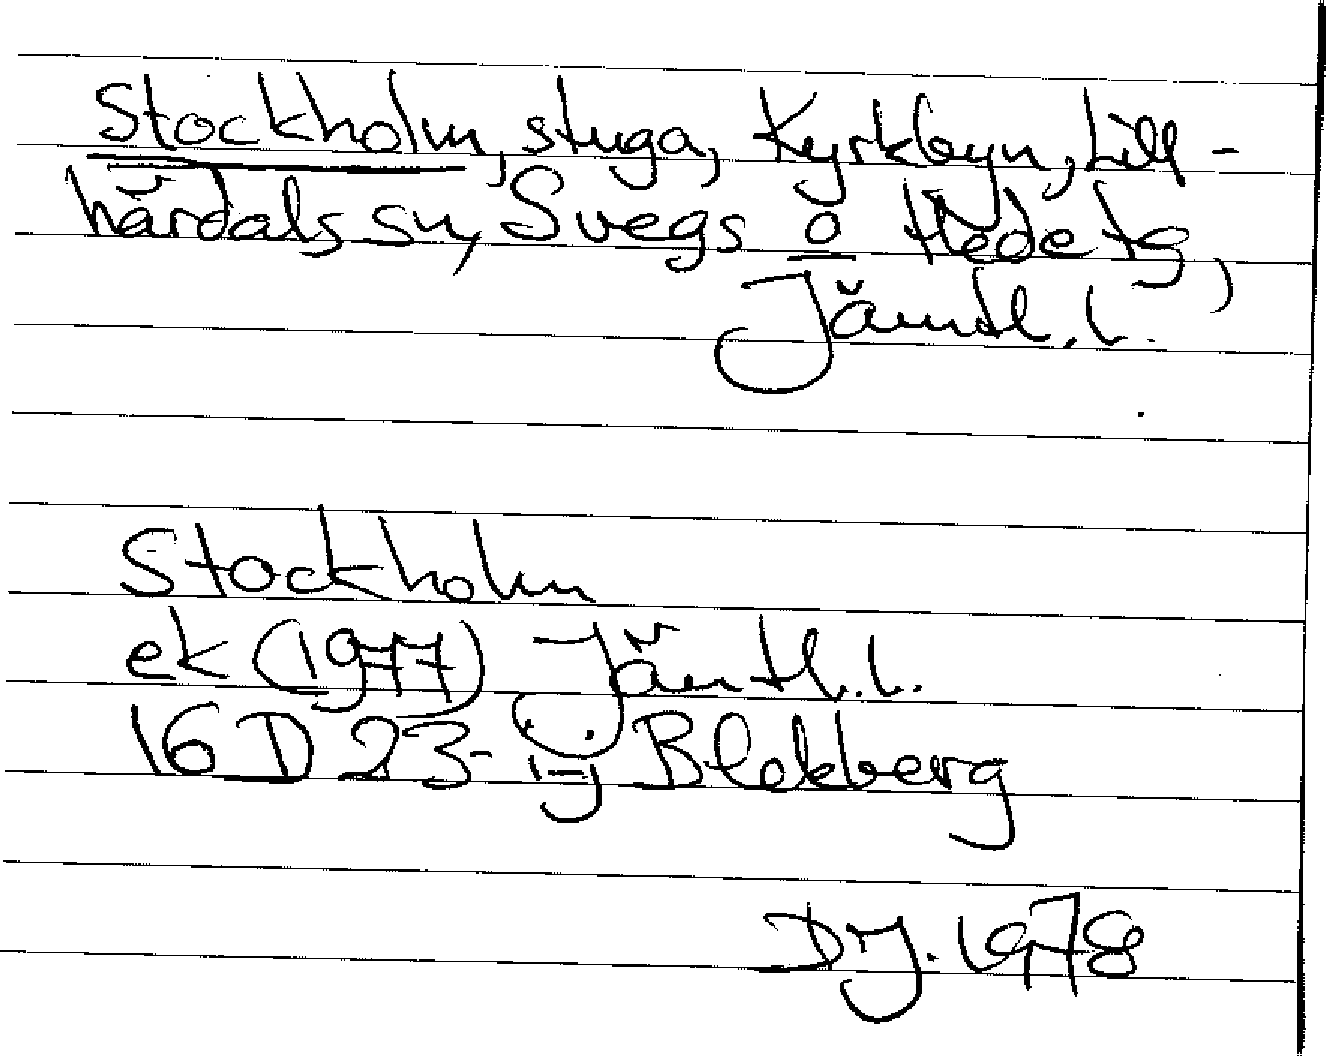 Stockholm, stuga, Kyrkbyn, Lill-
härdals sn, Svegs o Hede tg,
Jämtl. l.
Stockholm
ek (1977) Jämtl. l.
16 D 23-ij Blekberg
DJ. 1978